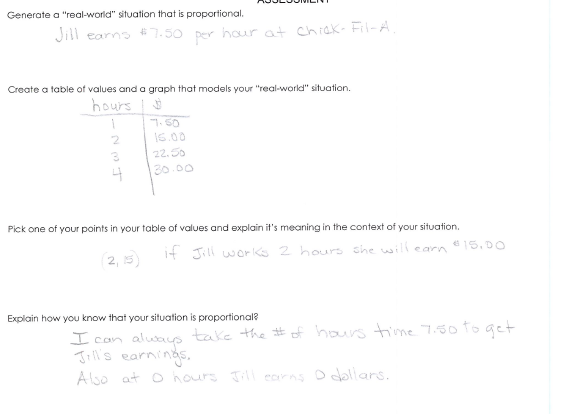 ASSESSMENT
Generate a "real-world" situation that is proportional.
Jill earns $7.50 per hour at Chick-Fil-A.
Create a table of values and a graph that models your "real-world" situation.
hours $
1 7.50
2 15.00
3 22.50
4 30.00
Pick one of your points in your table of values and explain it's meaning in the context of your situation.
(2, 15) if Jill works 2 hours she will earn $15.00
Explain how you know that your situation is proportional?
I can always take the # of hours time 7.50 to get
Jill's earnings.
Also at 0 hours Jill earns 0 dollars.